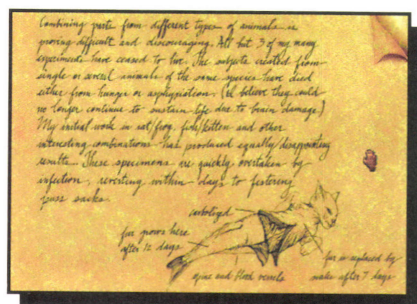 Combining parts from different types of animals is
proving difficult and discouraging. All but 3 of my many
experiments have ceased to live. The subjects created from
single or several animals of the same species have died
either from hunger or asphyxiation. (I believe they could
no longer continue to sustain life due to brain damage.)
My initial work in rat/frog, fish/kitten and other
interesting combinations has produced equally disappointing
results... These specimens are quickly overtaken by
infection, reverting within days to festering
puss sacks.
fur grows here
after 12 days
fur is replaced by
scales after 7 days
spine and blood vessels